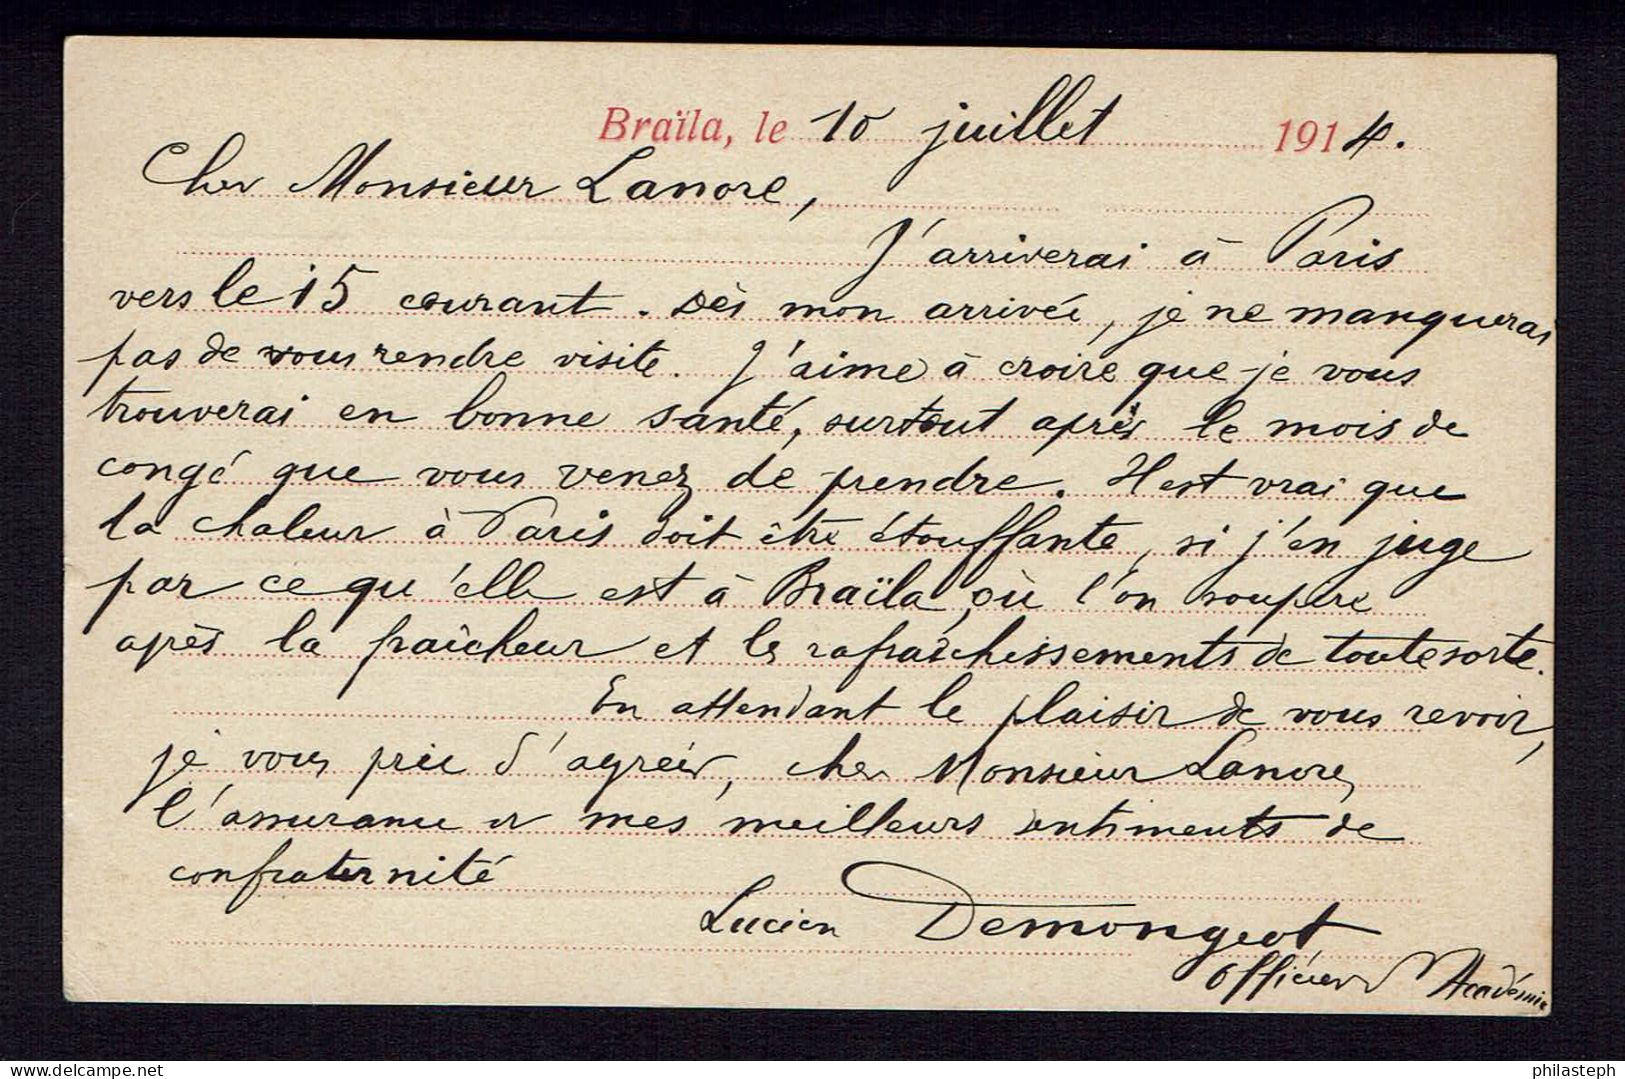 Braïla, le 10 juillet 1914.
Cher Monsieur Lanore,
J'arriverai à Paris
vers le 15 courant. Dès mon arrivée, je ne manquerai
pas de vous rendre visite. J'aime à croire que je vous
trouverai en bonne santé, surtout après le mois de
congé que vous venez de prendre. Il est vrai que
la chaleur à Paris doit être étouffante, si j'en juge
par ce qu'elle est à Braïla, où l'on soupire
après la fraîcheur et les rafraîchissements de toute sorte.
En attendant le plaisir de vous revoir,
je vous prie d'agréer, cher Monsieur Lanore,
l'assurance de mes meilleurs sentiments de
confraternité
Lucien Demongeot
Officier d'Académie
philasteph